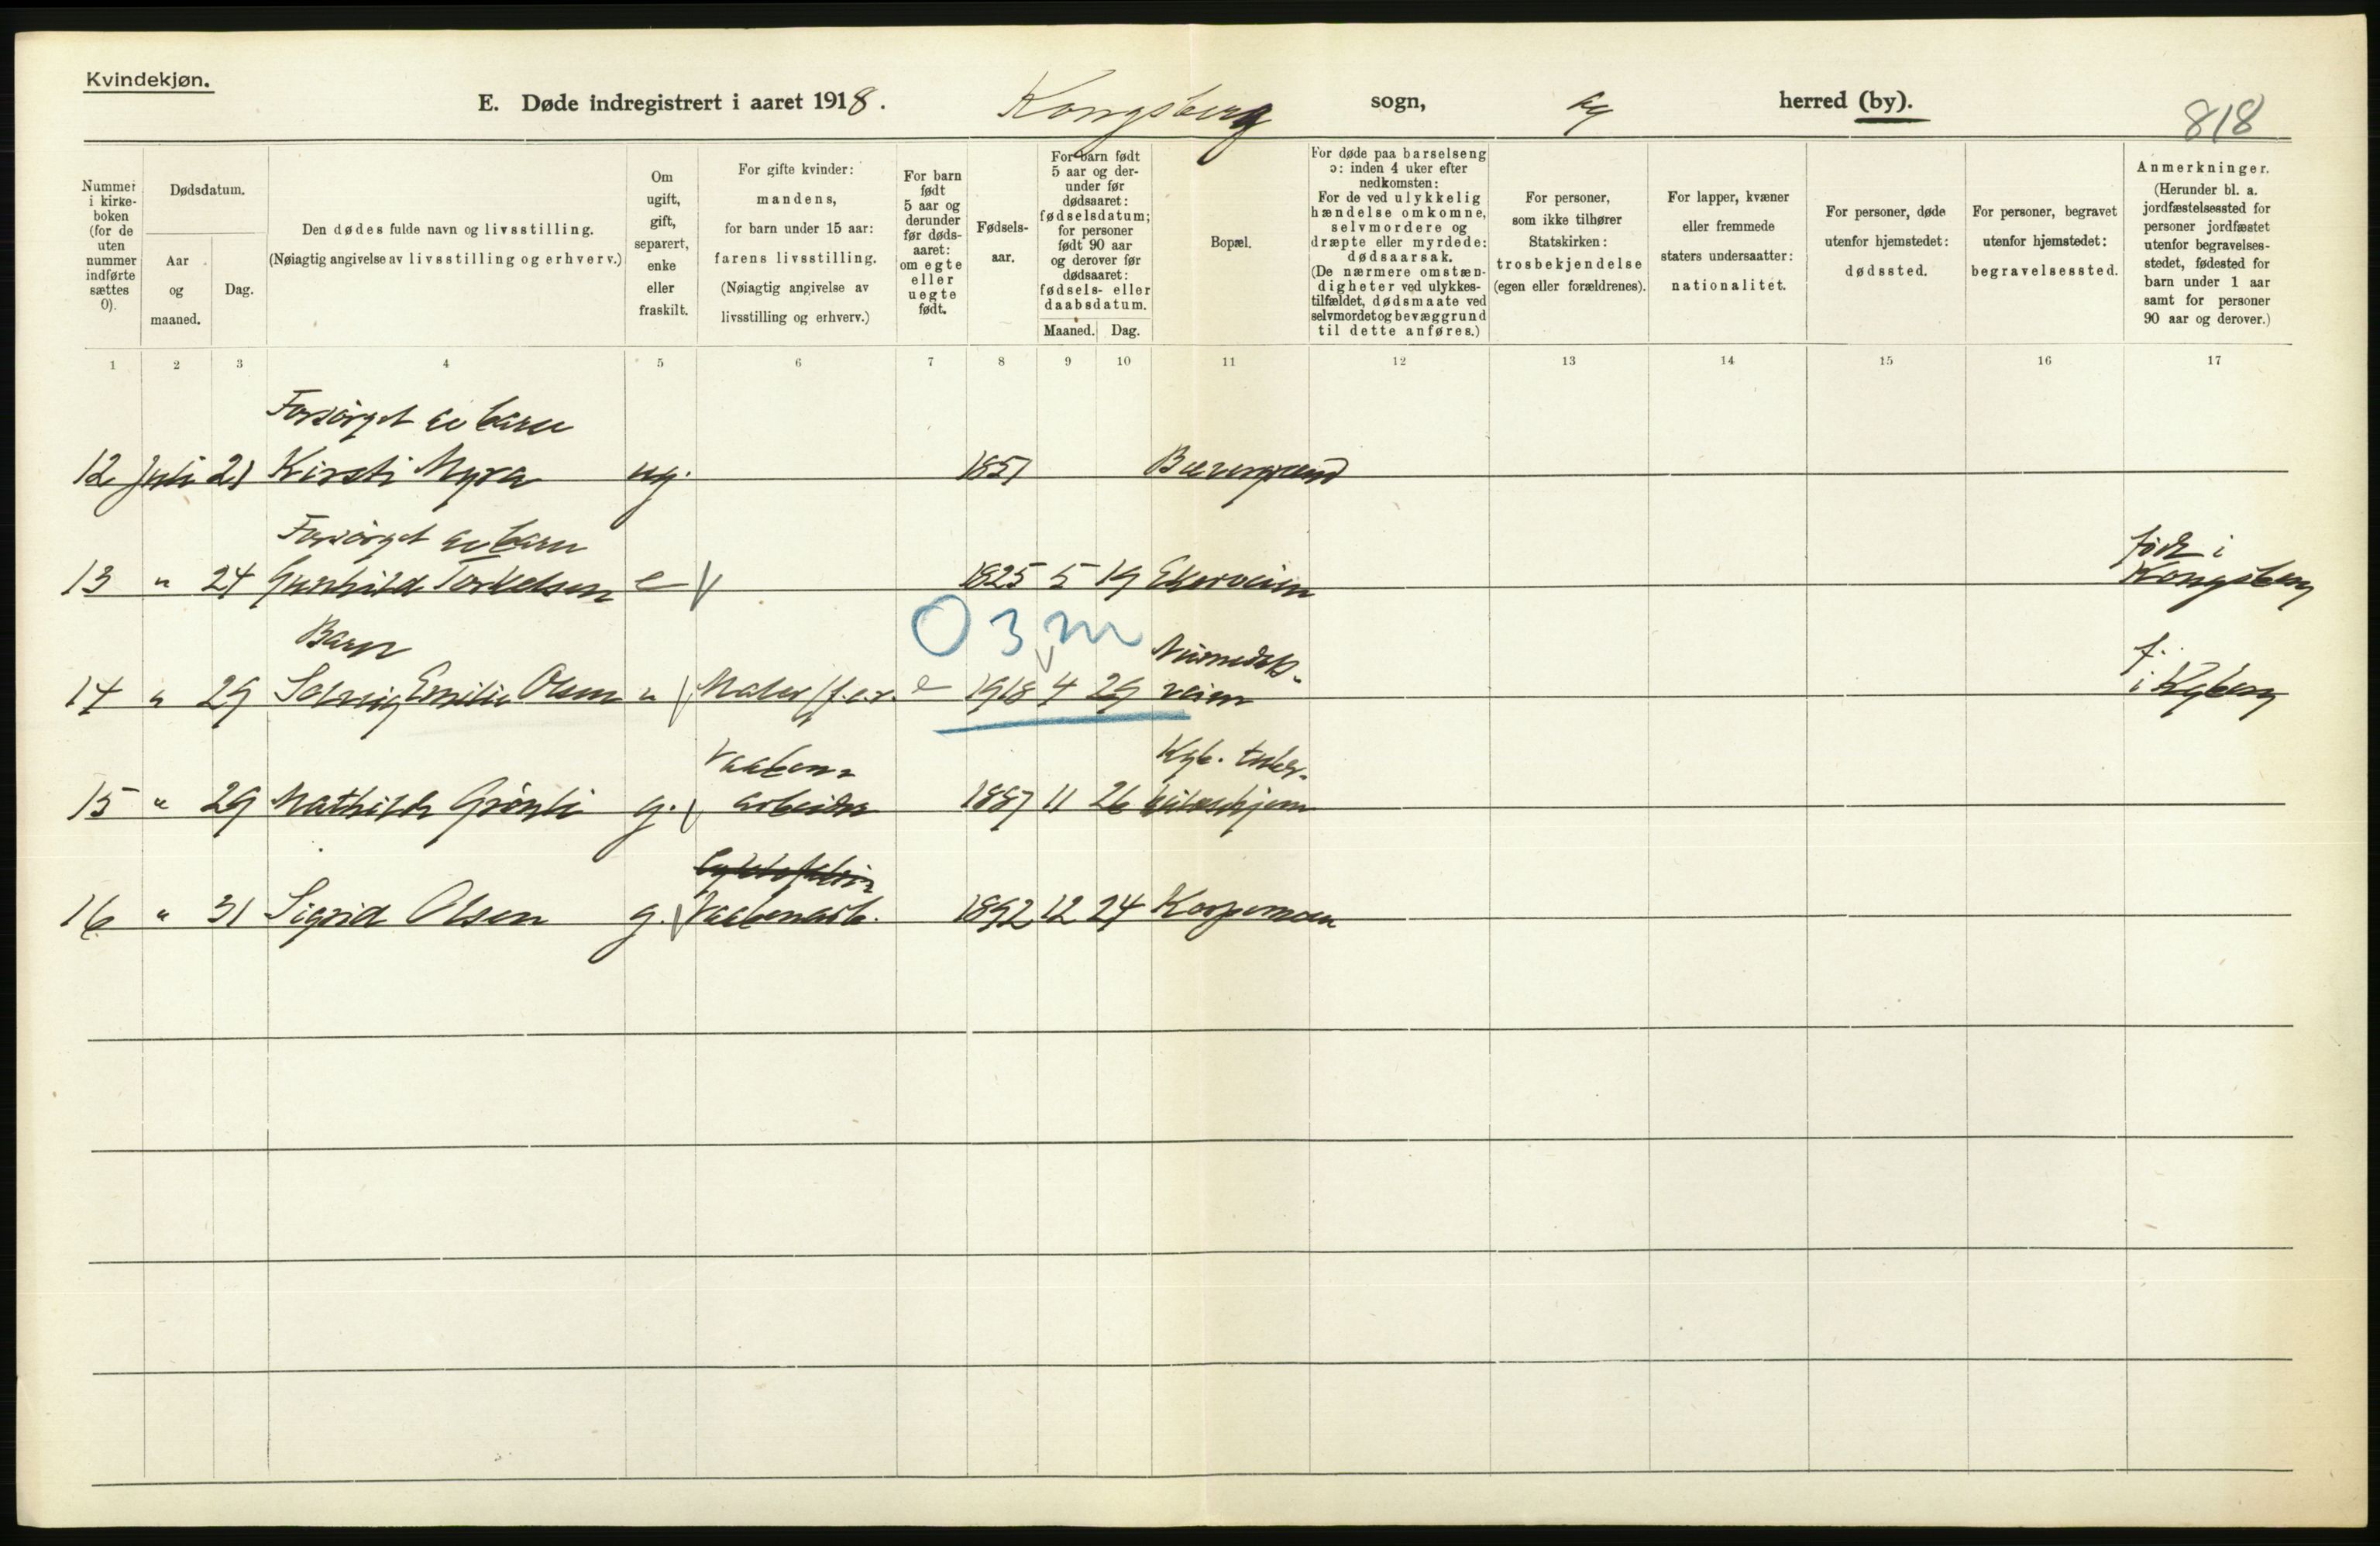 Kvindekjøn.
E. Døde indregistrert i aaret 1918. Kongsberg sogn, herred (by).
818
Nummer i kirkeboken (for de uten nummer indførte sættes 0).
Dødsdatum.
Aar og maaned.
Dag.
Den dødes fulde navn og livsstilling.
(Nøiagtig angivelse av livsstilling og erhverv.)
Om ugift, gift, separert, enke eller fraskilt.
For gifte kvinder: mandens, for barn under 15 aar: farens livsstilling.
(Nøiagtig angivelse av livsstilling og erhverv.)
For barn født 5 aar og derunder før dødsaaret: om egte eller uegte født.
Fødselsaar.
For barn født 5 aar og derunder før dødsaaret: fødselsdatum; for personer født 90 aar og derover før dødsaaret: fødsels- eller daabsdatum.
Maaned. Dag.
Bopæl.
For døde paa barselseng ɔ: inden 4 uker efter nedkomsten:
For de ved ulykkelig hændelse omkomne, selvmordere og dræpte eller myrdede: dødsaarsak.
(De nærmere omstændigheter ved ulykkestilfældet, dødsmaate ved selvmordet og bevæggrund til dette anføres.)
For personer, som ikke tilhører Statskirken: trosbekjendelse (egen eller forældrenes).
For lapper, kvæner eller fremmede staters undersaatter: nationalitet.
For personer, døde utenfor hjemstedet: dødssted.
For personer, begravet utenfor hjemstedet: begravelsessted.
Anmerkninger.
(Herunder bl. a. jordfæstelsessted for personer jordfæstet utenfor begravelsesstedet, fødested for barn under 1 aar samt for personer 90 aar og derover.)
1 2 3 4 5 6 7 8 9 10 11 12 13 14 15 16 17
Forsørget av barn
12 Juli 21 Kirsti Myra ug. 1857
Forsørget av barn
født i
13 " 24 Gunhild Torkelsen e 1825 5 19 Ekerveien Kongsberg
O 3 m
Barn
Numedals-
f.
14 " 29 Solveig Emilie Olsen " Maler e 1918 4 29 veien i Kgberg
Vaaben-
Kgb. tuber-
15 " 29 Mathilde Grønli g. arbeider 1887 11 26
16 " 31 Sigrid Olsen g. Vaabenarb. 1892 12 24